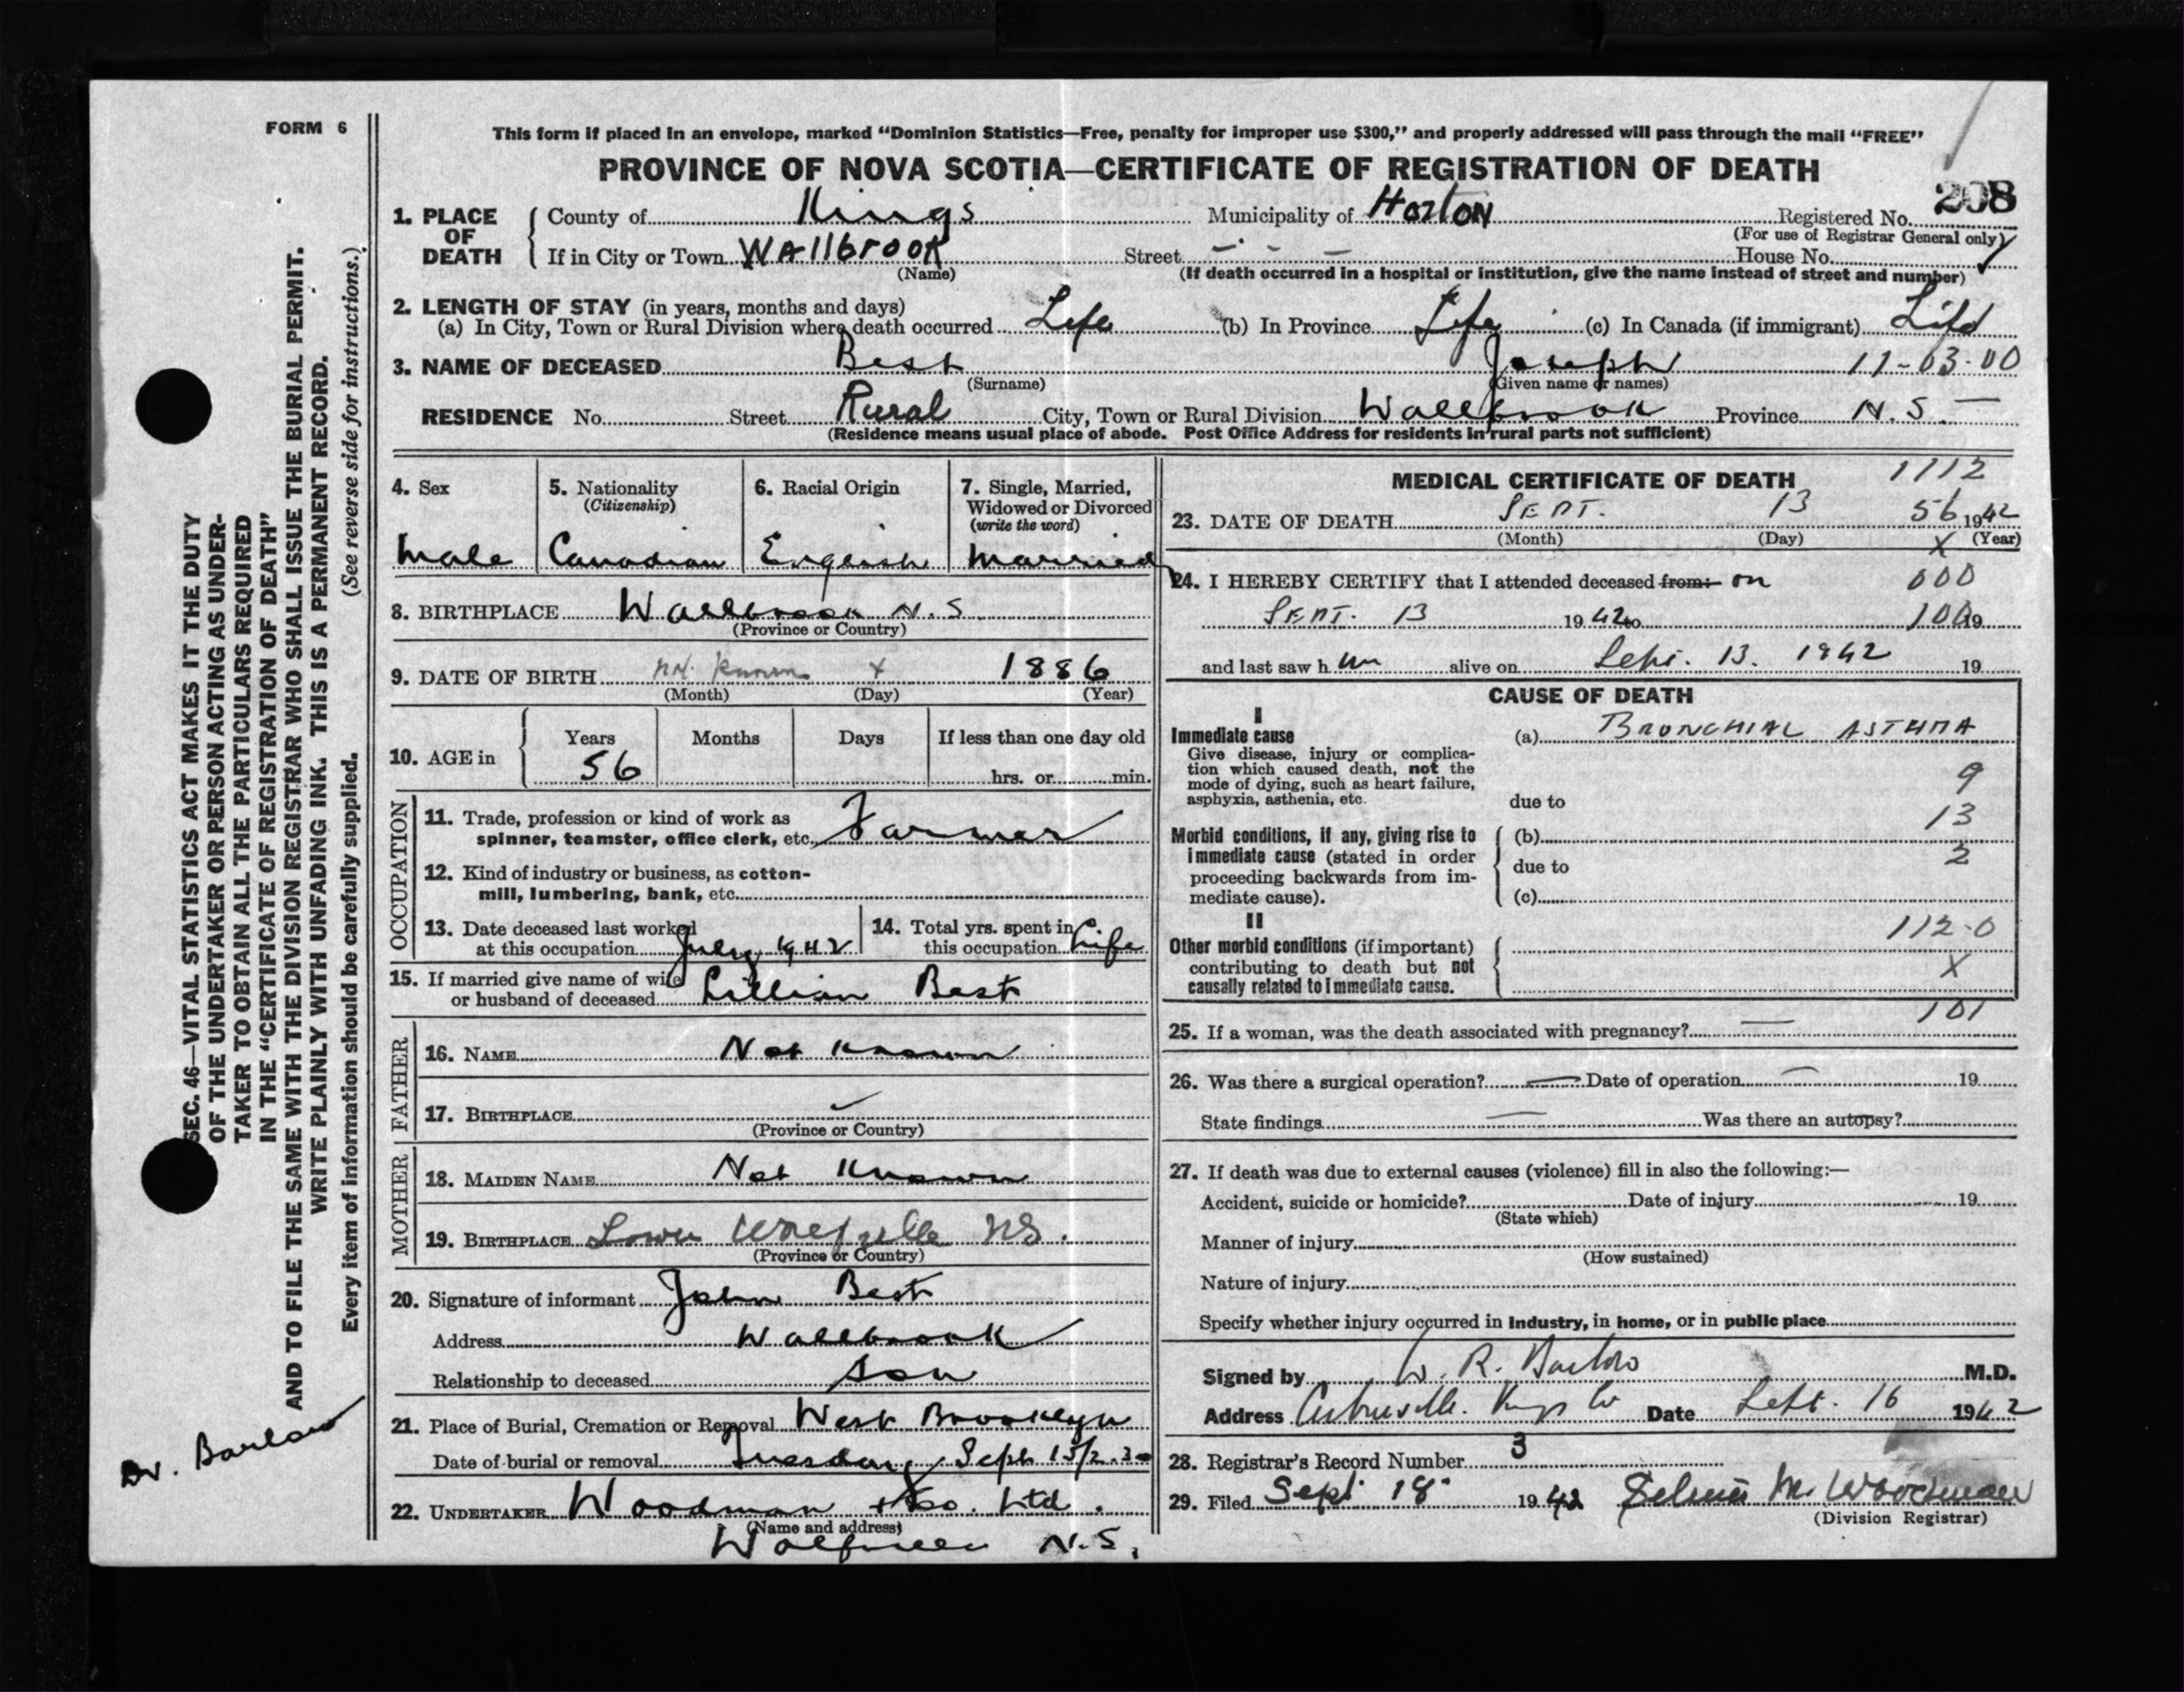 FORM 6
This form if placed in an envelope, marked “Dominion Statistics—Free, penalty for improper use $300,” and properly addressed will pass through the mail “FREE”
PROVINCE OF NOVA SCOTIA—CERTIFICATE OF REGISTRATION OF DEATH
208
1. PLACE OF DEATH { County of Kings Municipality of Horton Registered No.
(For use of Registrar General only)
If in City or Town Wallbrook Street - - - House No.
(Name) (If death occurred in a hospital or institution, give the name instead of street and number)
2. LENGTH OF STAY (in years, months and days)
(a) In City, Town or Rural Division where death occurred Life (b) In Province Life (c) In Canada (if immigrant) Life
3. NAME OF DECEASED Best Joseph 11-03-00
(Surname) (Given name or names)
RESIDENCE No. Street Rural City, Town or Rural Division Wallbrook Province N.S.
(Residence means usual place of abode. Post Office Address for residents in rural parts not sufficient)
4. Sex 5. Nationality 6. Racial Origin 7. Single, Married,
(Citizenship) Widowed or Divorced
(write the word)
Male Canadian English Married
8. BIRTHPLACE Wallbrook N.S.
(Province or Country)
9. DATE OF BIRTH not known x 1886
(Month) (Day) (Year)
10. AGE in { Years Months Days If less than one day old
56 hrs. or min.
OCCUPATION
11. Trade, profession or kind of work as
spinner, teamster, office clerk, etc. Farmer
12. Kind of industry or business, as cotton-
mill, lumbering, bank, etc.
13. Date deceased last worked 14. Total yrs. spent in
at this occupation July 1942 this occupation Life
15. If married give name of wife
or husband of deceased Lillian Best
FATHER
16. NAME Not known
17. BIRTHPLACE
(Province or Country)
MOTHER
18. MAIDEN NAME Not Known
19. BIRTHPLACE Lower Wolfville NS.
(Province or Country)
20. Signature of informant John Best
Address Wallbrook
Relationship to deceased Son
21. Place of Burial, Cremation or Removal West Brooklyn
Date of burial or removal Tuesday Sept 15/2.30
22. UNDERTAKER Woodman & Co. Ltd.
(Name and address)
Wolfville N.S.
MEDICAL CERTIFICATE OF DEATH 1112
23. DATE OF DEATH SEPT. 13 56 1942
(Month) (Day) x (Year)
24. I HEREBY CERTIFY that I attended deceased from: on 000
SEPT. 13 1942 to 100 19
and last saw h im alive on Sept. 13. 1942 19
CAUSE OF DEATH
I
Immediate cause (a) BRONCHIAL ASTHMA
Give disease, injury or complica-
tion which caused death, not the 9
mode of dying, such as heart failure,
asphyxia, asthenia, etc. due to
13
Morbid conditions, if any, giving rise to { (b)
immediate cause (stated in order 2
proceeding backwards from im- due to
mediate cause). (c)
II
112-0
Other morbid conditions (if important) {
contributing to death but not X
causally related to immediate cause.
101
25. If a woman, was the death associated with pregnancy? —
26. Was there a surgical operation? — Date of operation — 19
State findings — Was there an autopsy?
27. If death was due to external causes (violence) fill in also the following:—
Accident, suicide or homicide? Date of injury 19
(State which)
Manner of injury
(How sustained)
Nature of injury
Specify whether injury occurred in Industry, in home, or in public place
Signed by W. R. Barlow M.D.
Address Centreville. Kings Co Date Sept. 16 1942
28. Registrar's Record Number 3
29. Filed Sept 18 1942 M. Woodman
(Division Registrar)
SEC. 46—VITAL STATISTICS ACT MAKES IT THE DUTY
OF THE UNDERTAKER OR PERSON ACTING AS UNDER-
TAKER TO OBTAIN ALL THE PARTICULARS REQUIRED
IN THE “CERTIFICATE OF REGISTRATION OF DEATH”
AND TO FILE THE SAME WITH THE DIVISION REGISTRAR WHO SHALL ISSUE THE BURIAL PERMIT.
WRITE PLAINLY WITH UNFADING INK. THIS IS A PERMANENT RECORD.
Every item of information should be carefully supplied. (See reverse side for instructions.)
Dr. Barlow